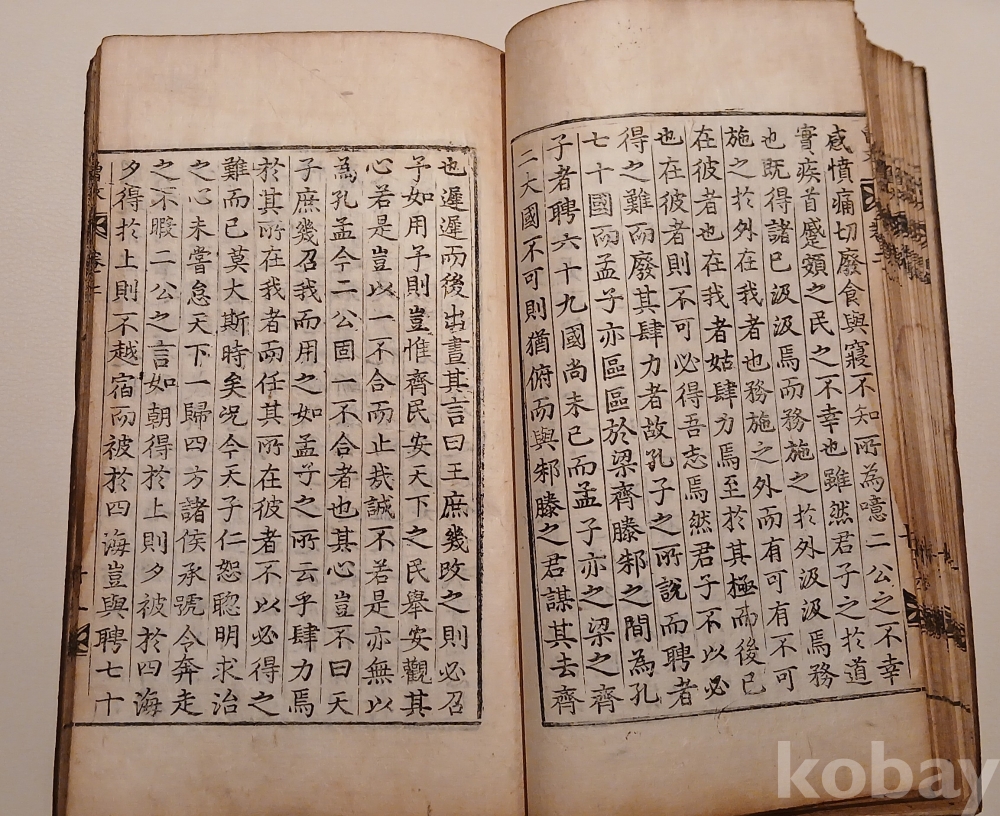 感憤痛切廢食與寢不知所為噫二公之不幸
實疾首蹙頞之民之不幸也雖然君子之於道
也既得諸已汲汲焉而務施之於外汲汲焉務
施之於外在我者也務施之外而有可有不可
在彼者也在我者姑肆力焉至於其極而後已
也在彼者則不可必得吾志焉然君子不以必
得之難而廢其肆力者故孔子之所說而聘者
七十國而孟子亦區區於梁齊滕邾之間為孔
子者聘六十九國尚未已而孟子亦之梁之齊
二大國不可則猶俯而與邾滕之君謀其去齊
也遲遲而後出晝其言曰王庶幾改之則必召
予如用予則豈惟齊民安天下之民舉安觀其
心若是豈以一不合而止哉誠不若是亦無以
為孔孟今二公固一不合者也其心豈不曰天
子庶幾召我而用之如孟子之所云乎肆力焉
於其所在我者而任其所在彼者不以必得之
難而已莫大斯時矣况今天子仁恕聰明求治
之心未嘗怠天下一歸四方諸侯承號令奔走
之不暇二公之言如朝得於上則夕被於四海
夕得於上則不越宿而被於四海豈與聘七十
kobay